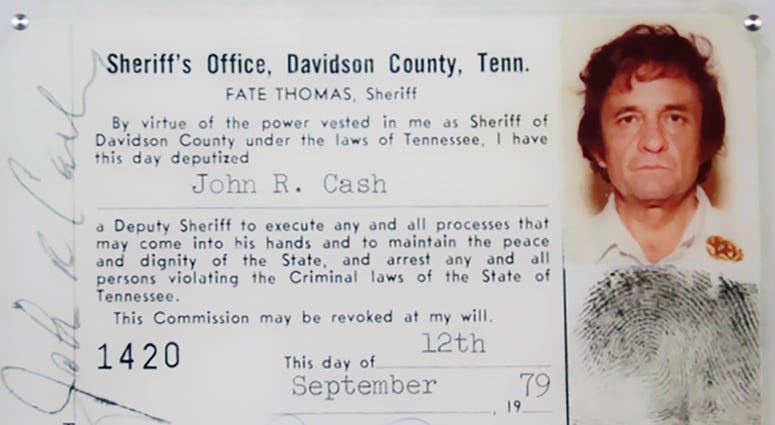 Sheriff's Office, Davidson County, Tenn.
FATE THOMAS, Sheriff
By virtue of the power vested in me as Sheriff of
Davidson County under the laws of Tennessee, I have
this day deputized
John R. Cash
a Deputy Sheriff to execute any and all processes that
may come into his hands and to maintain the peace
and dignity of the State, and arrest any and all
persons violating the Criminal laws of the State of
Tennessee.
This Commission may be revoked at my will.
1420
This day of 12th
September 79
, 19
John R Cash